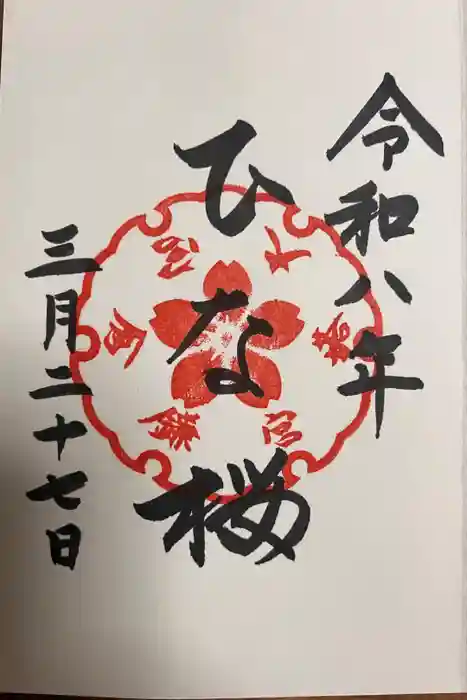 令和八年
ひな桜
三月二十七日